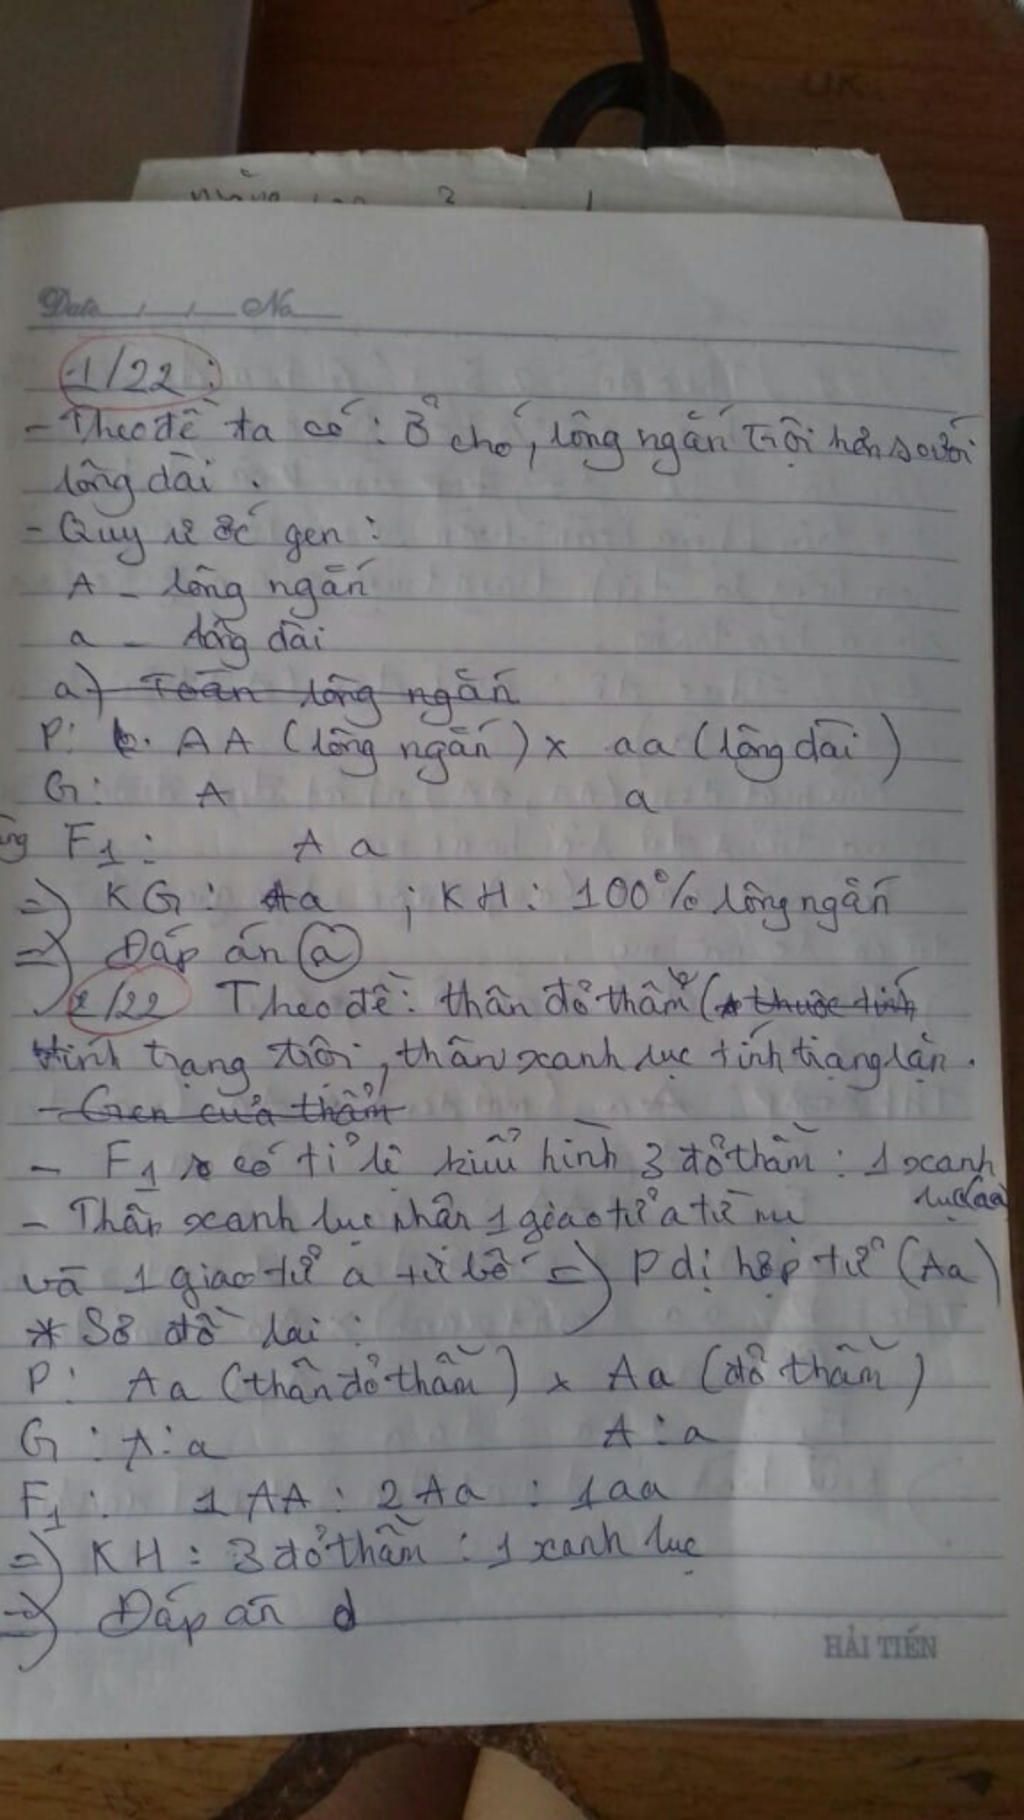 Date / / No
1/22 :
- Theo đề ta có : Ở chó, lông ngắn trội hơn so với
lông dài .
- Quy ước gen :
A - lông ngắn
a - lông dài
a) Toàn lông ngắn
P: AA (lông ngắn) x aa (lông dài)
G: A a
F1 : Aa
=> KG : Aa ; KH : 100% lông ngắn
=> Đáp án (a)
2/22 Theo đề: thân đỏ thẫm ( thuộc tính
tính trạng trội, thân xanh lục tính trạng lặn .
- Gen của thẩm
- F1 có tỉ lệ kiểu hình 3 đỏ thẫm : 1 xanh
lục (aa)
- Thân xanh lục nhận 1 giao tử a từ mẹ
và 1 giao tử a từ bố => P dị hợp tử (Aa)
* Sơ đồ lai :
P: Aa (thân đỏ thẫm) x Aa (đỏ thẫm)
G : A : a A : a
F1 : 1 AA : 2 Aa : 1 aa
=> KH : 3 đỏ thẫm : 1 xanh lục
=> Đáp án d
HẢI TIẾN